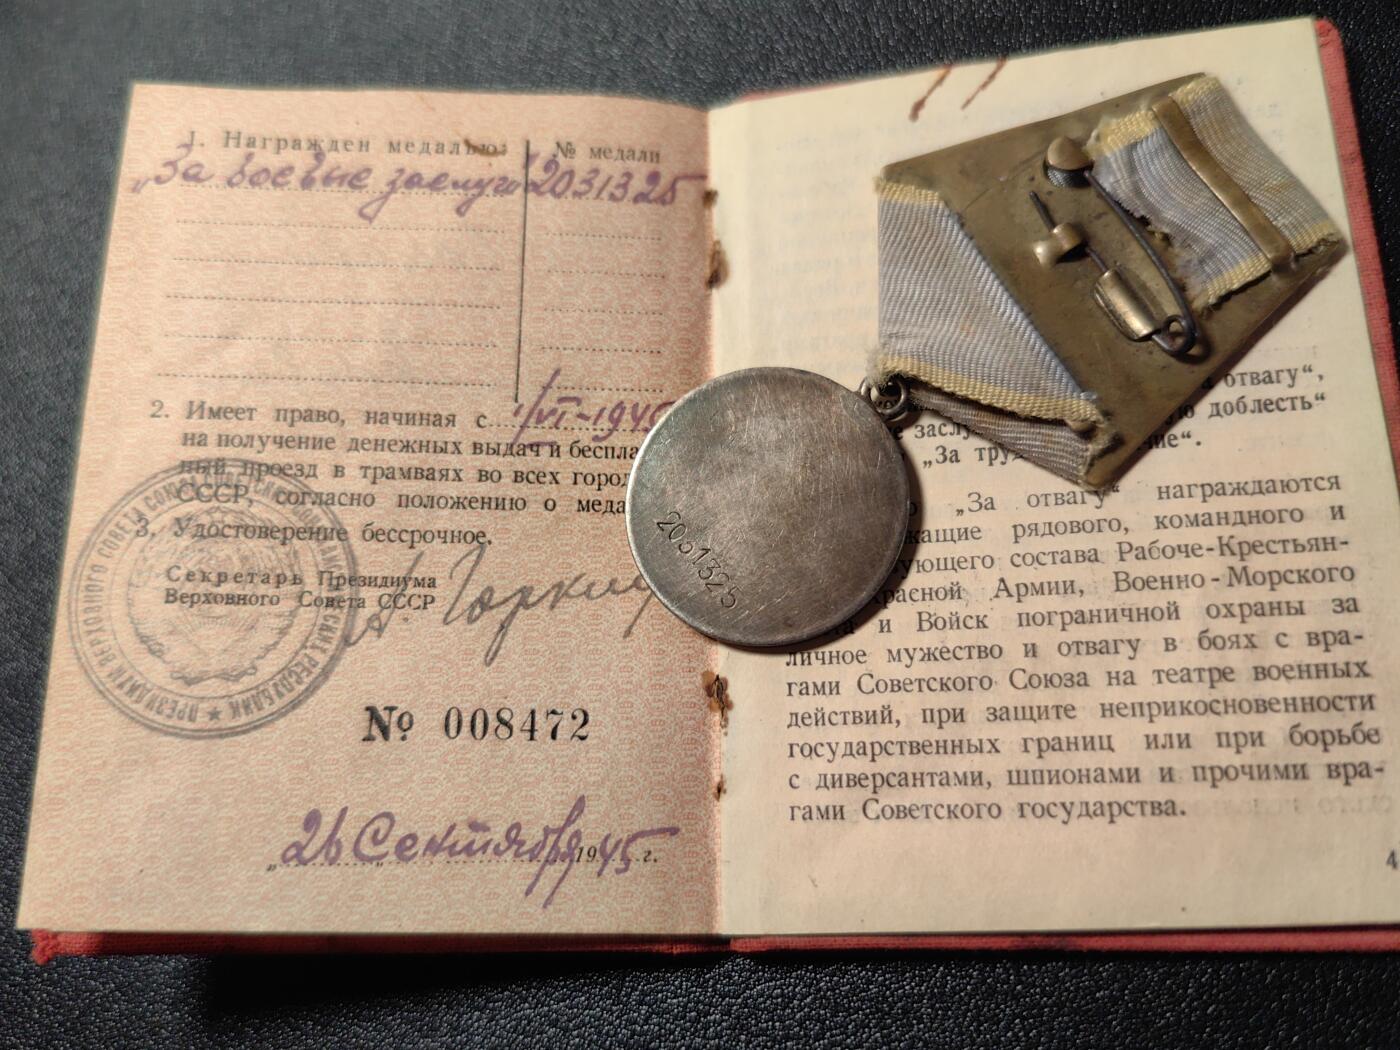 1. Награжден медалью:
№ медали
„За боевые заслуги“ 2031325
2. Имеет право, начиная с 1/VI-1945
на получение денежных выдач и беспла
ный проезд в трамваях во всех город
СССР, согласно положению о меда
3. Удостоверение бессрочное.
Секретарь Президиума
Верховного Совета СССР
А. Горкин
ПРЕЗИДИУМ ВЕРХОВНОГО СОВЕТА СОЮЗА СОВЕТСКИХ СОЦИАЛИСТИЧЕСКИХ РЕСПУБЛИК
№ 008472
„26 Сентября 1945 г.
2031325
отвагу“,
доблесть“
заслу
„За тру
ие“.
„За отвагу“ награждаются
жащие рядового, командного и
ующего состава Рабоче-Крестьян-
расной Армии, Военно-Морского
та и Войск пограничной охраны за
личное мужество и отвагу в боях с вра-
гами Советского Союза на театре военных
действий, при защите неприкосновенности
государственных границ или при борьбе
с диверсантами, шпионами и прочими вра-
гами Советского государства.
4